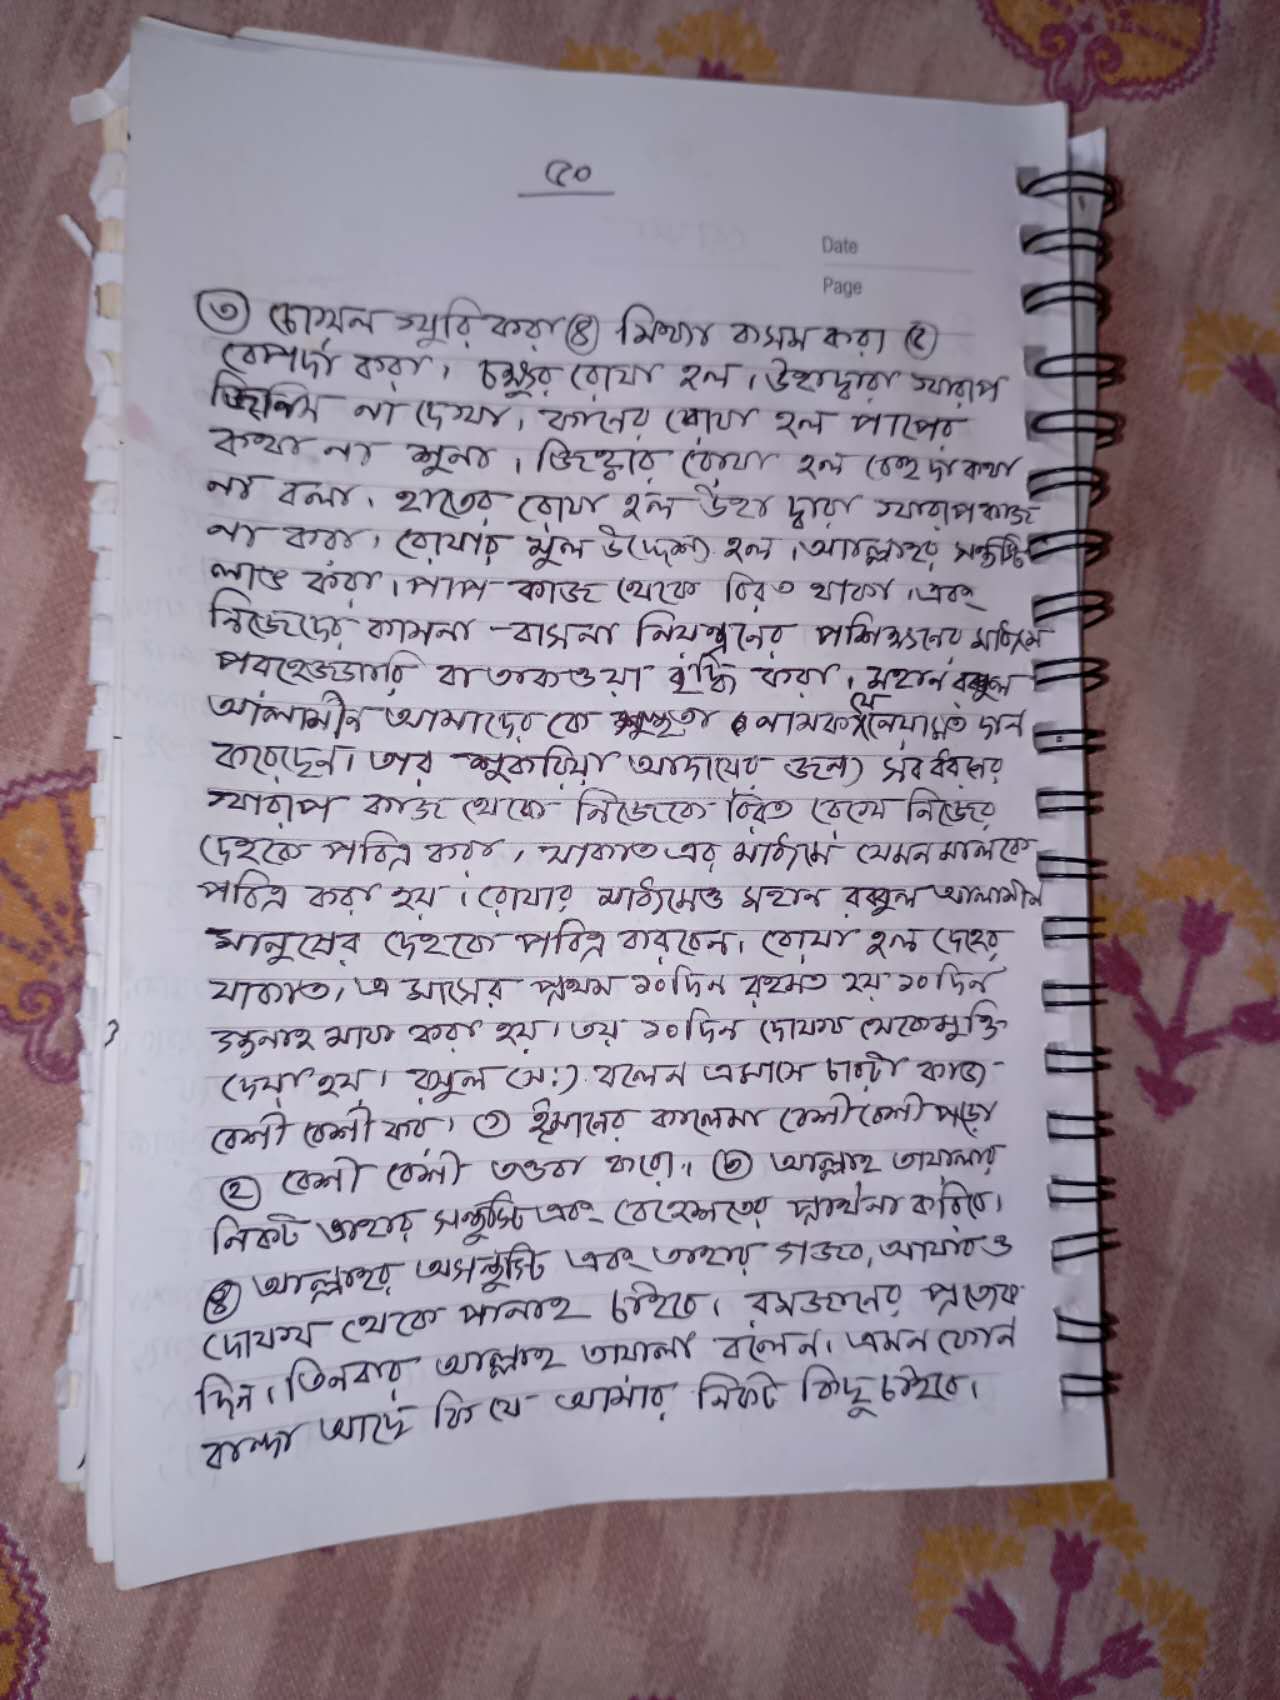 ৫০
Date
Page
৩ চোগল খুরি করা ৪ মিথ্যা কসম করা ৫
বেপর্দা করা। চক্ষুর রোযা হল। উহাদ্বারা খারাপ
জিনিস না দেখা। কানের রোযা হল পাপের
কথা না শুনা। জিহ্বার রোযা হল বেহুদা কথা
না বলা। হাতের রোযা হল উহা দ্বারা খারাপ কাজ
না করা। রোযার মূল উদ্দেশ্য হল। আল্লাহর সন্তুষ্টি
লাভ করা। পাপ কাজ থেকে বিরত থাকা। এবং
নিজেদের কামনা-বাসনা নিয়ন্ত্রনের প্রশিক্ষনের মাধ্যমে
পরহেজগারি বা তাকওয়া বৃদ্ধি করা। মহান রব্বুল
আলামীন আমাদের কে সুস্থতা নামক যে নেয়ামত দান
করেছেন। তার শুকরিয়া আদায়ের জন্য সব ধরনের
খারাপ কাজ থেকে নিজেকে বিরত রেখে নিজের
দেহকে পবিত্র করা। যাকাত এর মাধ্যমে যেমন মালকে
পবিত্র করা হয়। রোযার মাধ্যমেও মহান রব্বুল আলামীন
মানুষের দেহকে পবিত্র করবেন। রোযা হল দেহের
যাকাত। এ মাসের প্রথম ১০দিন রহমত ২য় ১০দিন
গুনাহ মাফ করা হয়। ৩য় ১০দিন দোযখ থেকে মুক্তি
দেয়া হয়। রসুল (স:) বলেন এমাসে চারটা কাজ
বেশী বেশী কর। ১ ইমানের কালেমা বেশী বেশী পড়ো
২ বেশী বেশী তওবা করো। ৩ আল্লাহ তায়ালার
নিকট তাহার সন্তুষ্টি এবং বেহেশতের প্রার্থনা করিবে।
৪ আল্লাহর অসন্তুষ্টি এবং তাহার গজব, আযাব ও
দোযখ থেকে পানাহ চাইবে। রমজানের প্রত্যেক
দিন। তিনবার আল্লাহ তায়ালা বলেন। এমন কোন
বান্দা আছে কি যে আমার নিকট কিছু চাইবে।